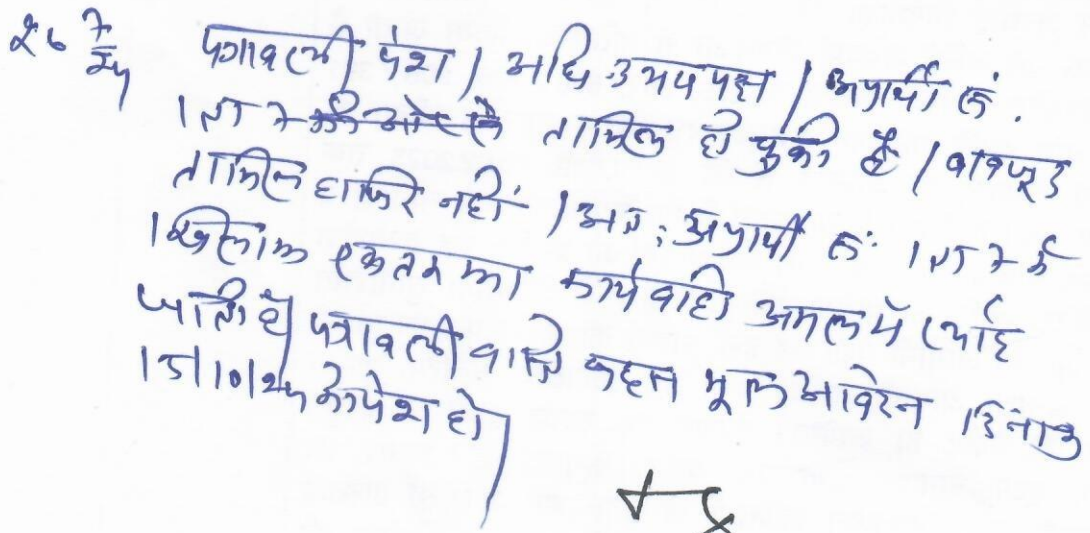 26 7/24 पत्रावली पेश / अधि. उभयपक्ष / अप्रार्थी सं.
1 ता 7 की ओर से तामिल हो चुकी है / बावजूद
तामिल हाजिर नहीं / अतः अप्रार्थी सं. 1 ता 7 के
खिलाफ एकतरफा कार्यवाही अमल में लाई
जाती है। पत्रावली वास्ते बहस मूल आवेदन दिनांक
15/10/24 को पेश हो।